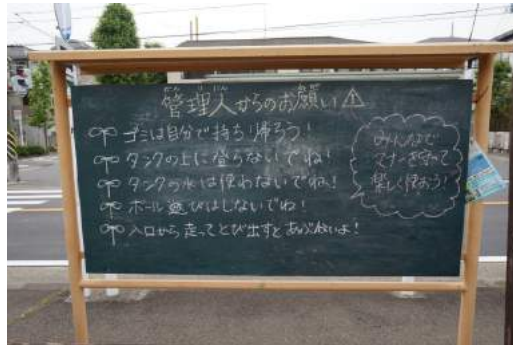 管理人からのお願い⚠
ゴミは自分で持ち帰ろう!
タンクの上に登らないでね!
タンクの水は使わないでね!
ボール遊びはしないでね!
入口から走ってとび出すとあぶないよ!
みんなで
マナーを守って
楽しく使おう!